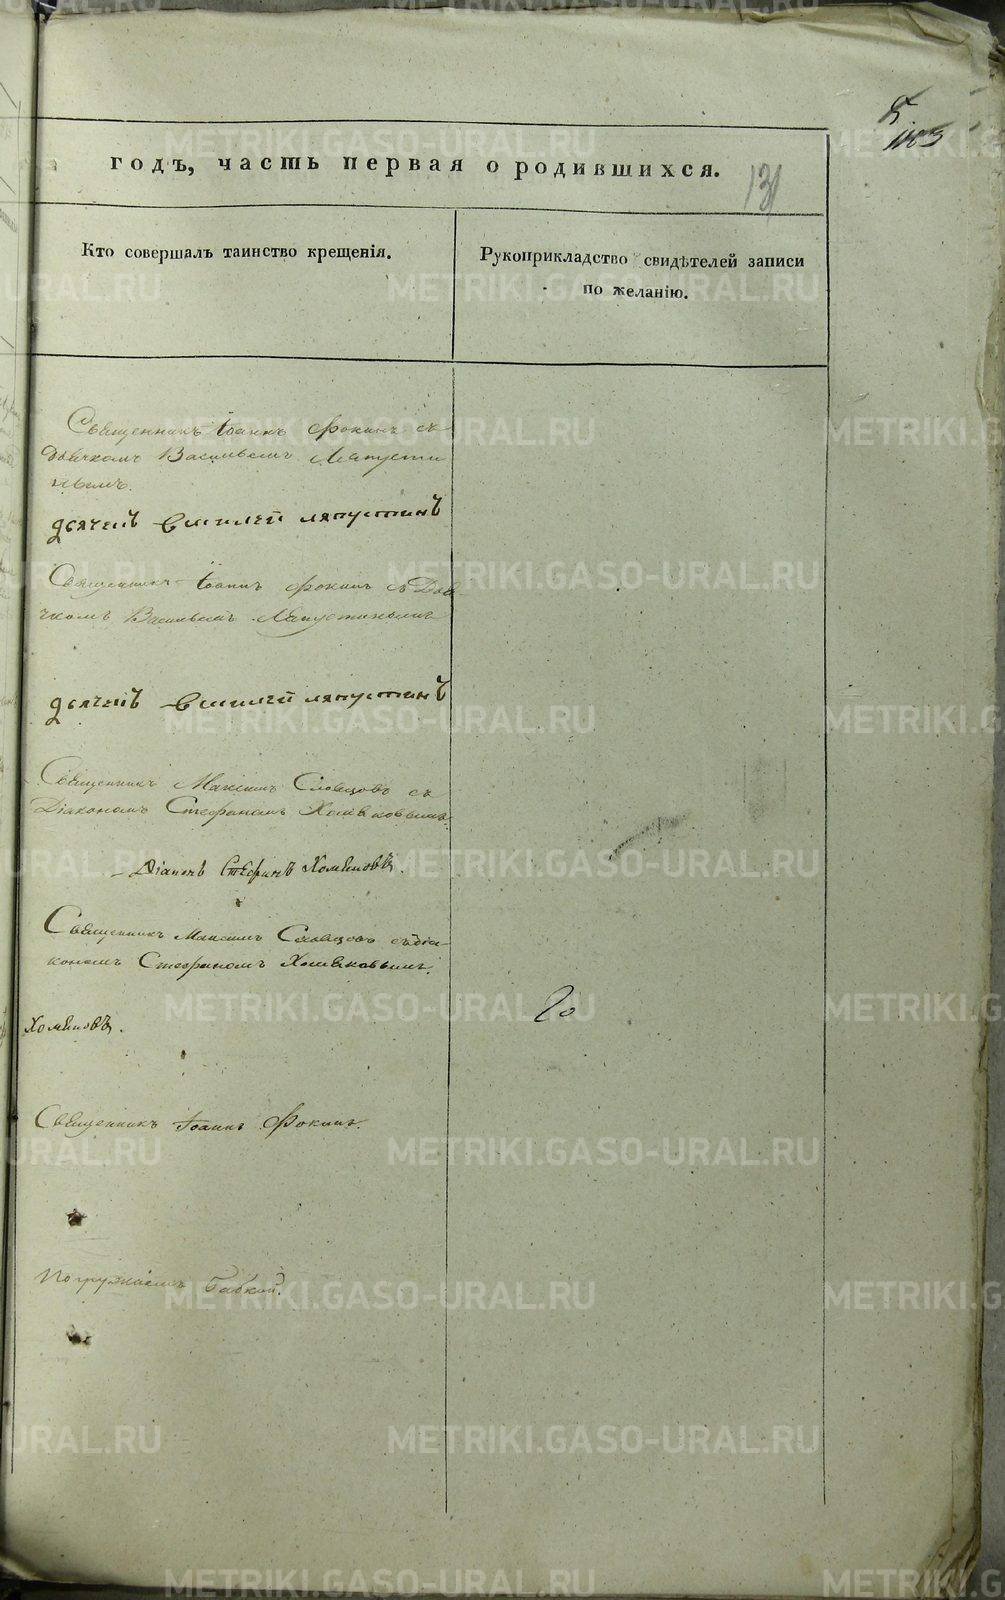 5
131
годъ, часть первая о родившихся.
Кто совершалъ таинство крещенія.
Рукоприкладство свидѣтелей записи
по желанію.
Священникъ Іоаннъ Фокинъ съ
Дьячкомъ Васильемъ Ляпусти
нымъ.
дьячекъ василей ляпустинъ
Священникъ Іоаннъ Фокинъ съ Дья
чкомъ Васильемъ Ляпустинымъ
дьячекъ василей ляпустинъ
Священникъ Максимъ Словцовъ съ
Діакономъ Стефаномъ Хомяковымъ.
Діаконъ Стефанъ Хомяковъ.
Священникъ Максимъ Словцовъ съ діа-
кономъ Стефаномъ Хомяковымъ.
Хомяковъ.
20
Священникъ Іоаннъ Фокинъ.
Погружаемъ бабкой.
METRIKI.GASO-URAL.RU